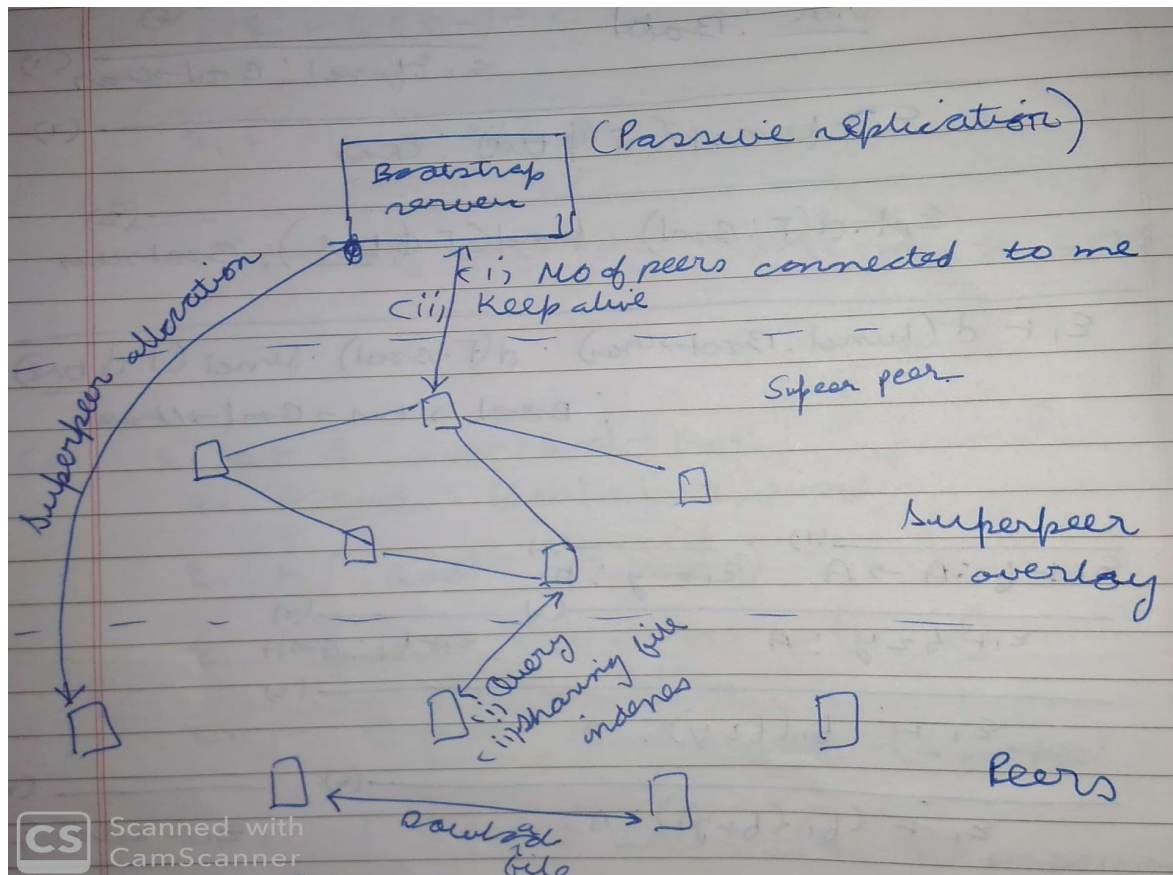 (Passive replication)
Bootstrap
server
(i) No of peers connected to me
(ii) Keep alive
Superpeer allocation
Supeer peer
Superpeer
overlay
(i) Query
(ii) sharing file
indexes
Peers
Download
file
CS Scanned with
CamScanner